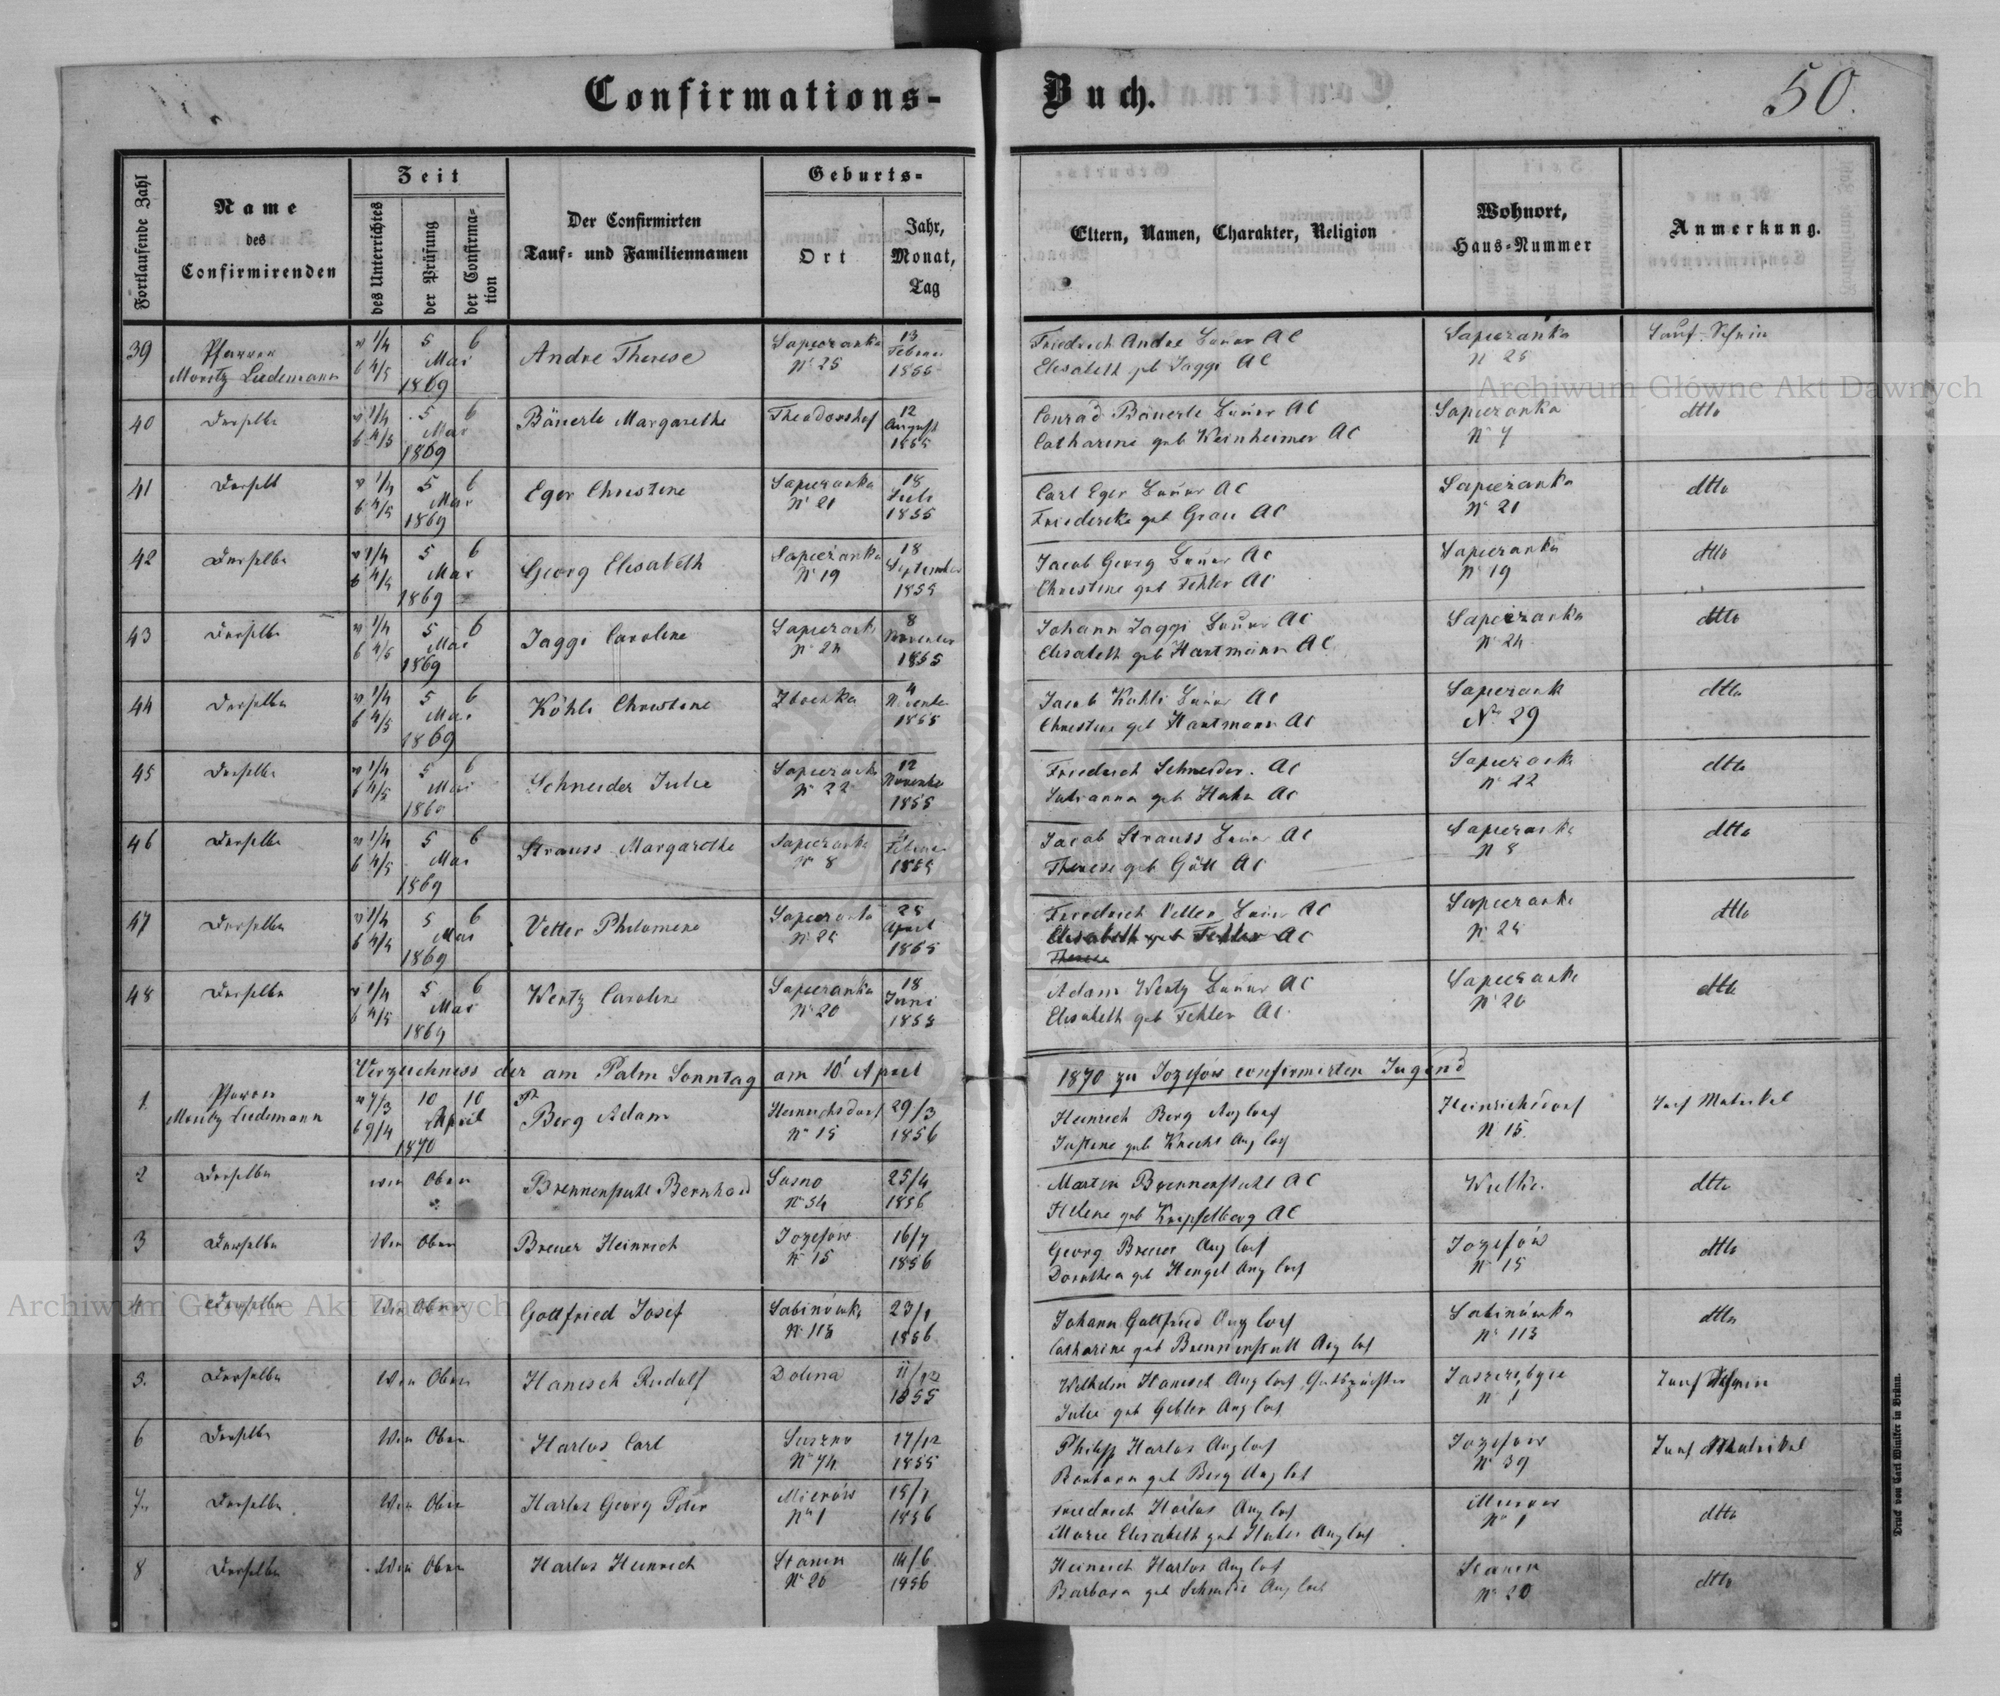 Confirmations-Buch.
50.
Fortlaufende Zahl
Name des Confirmirenden
Zeit
des Unterrichtes
der Prüfung
der Confirmation
Der Confirmirten Tauf- und Familiennamen
Geburts-
Ort
Jahr, Monat, Tag
Eltern, Namen, Charakter, Religion
Wohnort, Haus-Nummer
Anmerkung.
39 Pfarrer Moritz Ludemann v 1/4 b 4/5 5 6 Mai 1869 Andre Therese Sapieranka N 25 13 Februar Friedrich Andre Bauer AC Sapieranka N 25 Tauf-Schein
Elisabeth geb Jaggi AC
40 Derselbe v 1/4 b 4/5 5 6 Mai 1869 Bäuerle Margarethe Theodorshof 12 August 1855 Conrad Bäuerle Bauer AC Sapieranka N 7 dtto
Catharine geb Weinheimer AC
41 Derselbe v 1/4 b 4/5 5 6 Mai 1869 Eger Christine Sapieranka N 21 18 Juli 1855 Carl Eger Bauer AC Sapiezanka N 21 dtto
Friedericke geb Grau AC
42 Derselbe v 1/4 b 4/5 5 6 Mai 1869 Georg Elisabeth Sapiezanka N 19 18 September 1855 Jacob Georg Bauer AC Sapiezanka N 19 dtto
Christine geb Fehler AC
43 Derselbe v 1/4 b 4/5 5 6 Mai 1869 Jaggi Caroline N 24 8 November 1855 Johann Jaggi Bauer AC Sapiezanka N 24 dtto
Elisabeth geb Hartmann AC
44 Derselbe v 1/4 b 4/5 5 6 Mai 1869 Köhli Christine Zboiska 4 November 1855 Jacob Köhli Bauer AC N 29 dtto
Christine geb Hartmann AC
45 Derselbe v 1/4 b 4/5 5 6 Mai Schneider Julie N 22 12 November 1855 Friedrich Schneider AC N 22 dtto
Julianna geb Hahn AC
46 Derselbe v 1/4 b 4/5 5 6 Mai 1869 Strauss Margarethe N 8 Februar 1855 Jacob Strauss Bauer AC N 8 dtto
Therese geb Göll AC
47 Derselbe v 1/4 b 4/5 5 6 Mai 1869 Vetter Philomene 25 April Friedrich Vetter Bauer AC dtto
Elisabeth geb Fehler AC
Therese
48 Derselbe v 1/4 b 4/5 5 6 Mai 1869 Wentz Caroline Sapieranka N 20 18 Juni Adam Wentz Bauer AC N 20 dtto
Elisabeth geb Fehler AC
Verzeichniss der am Palm Sonntag am 10 April 1870 zu Jozefów confirmirten Jugend
1 Pfarrer Moritz Ludemann v 7/3 b 9/4 10 10 April 1870 Berg Adam Heinrichsdorf N 15 29/3 1856 Heinrich Berg Aug Conf Heinrichsdorf N 15 Tauf Matrikel
Justine geb Knecht Aug Conf
2 Derselbe wie Oben Brennenstuhl Bernhard Susno N 54 25/4 1856 Martin Brennenstuhl AC dtto
Helene geb Knipfelberg AC
3 Derselbe Wie Oben Breuer Heinrich Jozefów N 15 16/7 1856 Georg Breuer Aug Conf Jozefów N 15 dtto
Dorothea geb Hengel Aug Conf
4 Derselbe Wie Oben Gottfried Josef Sabinówka N 113 23/1 1856 Johann Gottfried Aug Conf Sabinówka N 113 dtto
Catharine geb Brennenstuhl Aug Conf
5. Derselbe Wie Oben Hanisch Rudolf Dolina 11/12 1855 Wilhelm Hanisch Aug Conf Gutspächter N 1 Tauf Schein
Julie geb Gebler Aug Conf
6 Derselbe Wie Oben Harlos Carl Suszno N 74 17/12 1855 Philipp Harlos Aug Conf Jozefow N 39 Tauf Matrikel
Barbara geb Berg Aug Conf
7. Derselbe Wie Oben Harlos Georg Peter Mierów N 1 15/1 1856 Friedrich Harlos Aug Conf Mierow N 1 dtto
Marie Elisabeth geb Huber Aug Conf
8 Derselbe Wie Oben Harlos Heinrich Stanin N 20 14/6 1856 Heinrich Harlos Aug Conf Stanin N 20 dtto
Barbara geb Schmidt Aug Conf
Druck von Carl Winiker in Brünn.
Archiwum Główne Akt Dawnych
Archiwum Główne Akt Dawnych